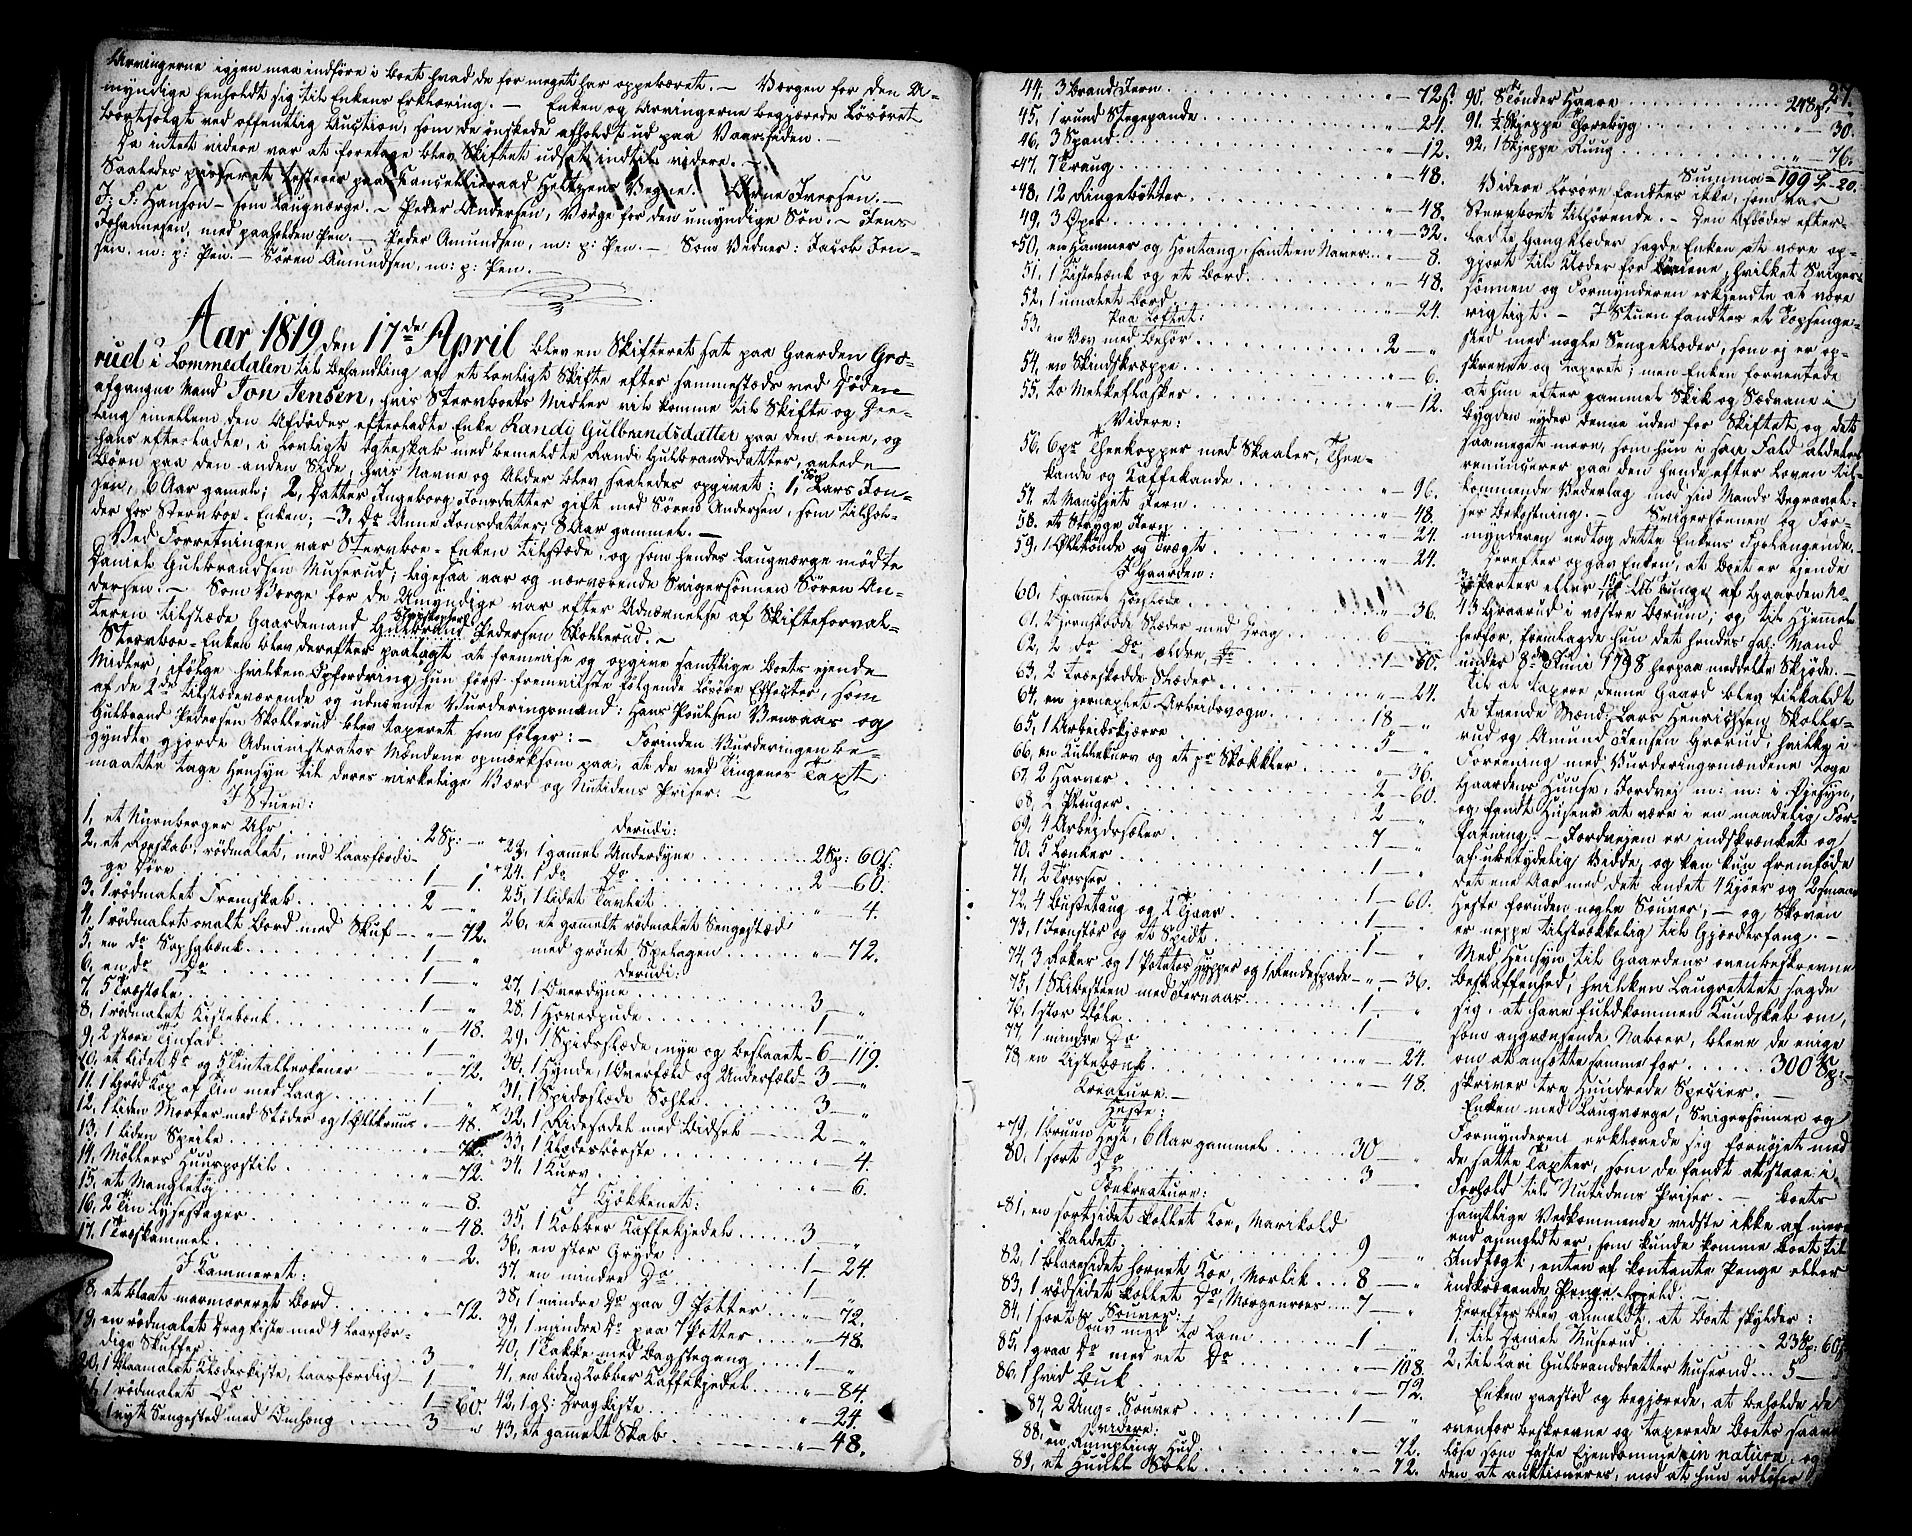 Arvingerne igjen maa indføre i Boet hvad de for meget har oppebæret. — Værgen for den U-
myndige henholdt sig til Enkens Erklæring. — Enken og Arvingerne begjærede Løsøret
bortsolgt ved offentlig Auction, som de ønskede afholdt ud paa Vaarsiden. —
Da intet videre var at foretage blev Skiftet udsat indtil videre. —
Saaledes passeret testeres paa Cancellieraad Heltzens Vegne. Arne Iversen. —
J: S: Hanson — som Laugværge. — Peder Andersen, Værge for den umyndige Søn. — Jens
Johannesen, med paaholden Pen. — Peder Amundsen, m: p: Pen. — Som Vidner: Jacob Jon-
sen, m: p: Pen. — Søren Amundsen, m: p: Pen. —
Aar 1819 den 17de April blev en Skifteret sat paa Gaarden Grø-
rud i Lommedalen til Behandling af et lovligt Skifte efter sammesteds ved Døden
afgangne Mand Jon Jensen, hvis Stervboets Midler vil komme til Skifte og Dee-
ling imellem den Afdødes efterladte Enke Randi Gulbrandsdatter paa den eene, og
hans efterladte, i lovligt Egteskab med bemeldte Randi Gulbrandsdatter, avlede
Børn paa den anden Side, hvis Navne og Alder blev saaledes opgivet: 1, Søn Lars Jon-
sen, 6 Aar gamel; 2, Datter Ingeborg Jonsdatter gift med Søren Andersen, som tilhol-
der hos Stervboe-Enken; — 3, Do Anne Jonsdatter, 8 Aar gammel. —
Ved Forretningen var Stervboe-Enken tilstæde, og som hendes Laugværge mødte
Daniel Gulbrandsen Muserud; ligesaa var og nærværende Svigersønnen Søren An-
dersen. — Som Værge for de Umyndige var efter Udnævnelse af Skifteforval-
teren tilstæde Gaardemand Gulbrand Pedersen Skotterud. —
Stervboe-Enken blev derefter paalagt at fremvise og opgive samtlige Boets ejende
Midler, ifølge hvilken Opfordring hun først fremviiste følgende Løsøre Effecter, som
af de 2de tilstædeværende og udnævnte Vurderingsmænd: Hans Poulsen Bensaas og
Gulbrand Pedersen Skotterud blev taxeret som følger: — Forinden Vurderingen be-
gyndte gjorde Administrator Mændene opmærksom paa, at de ved Tingenes Taxt
maatte tage Hensyn til deres virkelige Værd og Nutidens Priser. —
I Stuen:
1, et Nürnberger Uhr . . . 2 Sp: — „
2, et Roeskab, rødmalet, med Laasfærdi-
ge Døre . . . 1 — 1.
3, 1 rødmalet Fremskab . . . 2 — „
4, 1 rødmalet ovalt Bord med Skuf — „ — 72.
5, en do Sophabænk . . . 1 — „
6, en do Do . . . 1 — „
7, 5 Træstole . . . 1 — „
8, 1 rødmalet Kistebænk . . . „ — 48.
9, 2 store Tinfad . . . 1 — „
10, et lidet Do og 5 Tintallerkener . . . „ — 72.
11, 1 Grød Kop af Tin med Laag . . . 1 — „
12, 1 liden Morter med Støder og 1 Ølkruus „ — 48.
13, 1 liden Speile . . . „ — 72.
14, Møllers Huuspostil . . . „ — 72.
15, et Mangletøj . . . „ — 8.
16, 2 Tin Lysestager . . . „ — 48.
17, 1 Træskammel . . . „ — 2.
I Kammeret:
18, et blaat marmoreret Bord . . . „ — 72.
19, en rødmalet Dragkiste med 4 laasfær-
dige Skuffer . . . 3 — „
20, 1 blaamalet Klædekiste, laasfærdig — 1 — „
1 rødmalet Do . . . 1 — 60.
1 nyt Sengested med Omhæng . . . 3 — „
Derudi:
23, 1 gammel Underdyne . . . 2 Sp: 60 s.
24, 1 do Do . . . 2 — 60.
25, 1 lidet Tavlet . . . „ — 4.
26, et gammelt rødmalet Sengestæd
med grønt Spelagen . . . „ — 72.
Derudi:
27, 1 Overdyne . . . 3 — „
28, 1 Hovedpude . . . 1 — „
29, 1 Spidsslæde, nye og beslaaet — 6 — 119.
30, 1 Hynde, 1 Overfæld og Underfæld — 3 — „
31, 1 Spidsslæde Sæle . . . 3 — „
32, 1 Ridesadel med Bidsel . . . 2 — „
33, 1 Klædesbørste . . . „ — 4.
34, 1 Kurv . . . „ — 6.
I Kjøkkenet:
35, 1 Kobber Kaffekjedel . . . 3 — „
36, en stor Gryde . . . 1 — 24.
37, en mindre Do . . . 1 — „
38, 1 mindre Do paa 9 Potter . . . „ — 72.
39, 1 mindre Do paa 7 Potter . . . „ — 48.
40, 1 Takke med Bagstegang . . . 1 — „
41, en liden Kobber Kaffekjedel . . . „ — 84.
42, 1 gl: Dragkiste . . . „ — 24.
43, et gamelt Skab . . . „ — 48.
44, 3 Brand Jern . . . „ — 72 s
45, 1 rund Stegepande . . . „ — 24.
46, 3 Spand . . . „ — 12.
47, 7 Traug . . . „ — 48.
48, 12 Ringebøtter . . . „ — 48.
49, 3 Øxer . . . „ — 32.
50, en Hammer og Hovtang, samt en Naver . . . „ — 8.
51, 1 Kistebænk og et Bord . . . „ — 48.
52, 1 umalet Bord . . . „ — 24.
Paa Loftet:
53, en Væv med Behør . . . 2 — „
54, en Skindskræppe . . . „ — 6.
55, to Melkeflasker . . . „ — 12.
Videre:
56, 6 pr Theekopper med Skaaler, Thee-
kande og Kaffekande . . . „ — 96.
57, et Manchet Jern . . . „ — 48.
58, et Stryge Jern . . . „ — 24.
59, 1 Øltønde og Tragt . . . „ — 24.
I Gaarden:
60, 1 gammel Høeslæde . . . „ — 36.
61, 2 Jernskodde Slæder med Drag . . . 6 — „
62, 2 do Do ældre . . . 1 — 60.
63, 2 træskodde Slæder . . . „ — 24.
64, en jernexlet Arbeidsvogn . . . 18 — „
65, 1 Arbeidskjærre . . . 5 — „
66, en Kullekurv og et pr Skokkler . . . „ — 36.
67, 2 Harver . . . 2 — 60.
68, 2 Plouger . . . 2 — „
69, 4 Arbejdssæler . . . 7 — „
70, 5 Lænker . . . 1 — „
71, 2 Trosser . . . 1 — 60.
72, 4 Bustetaug og 2 Tjaar . . . 1 — „
73, 1 Jernstør og et Spidt . . . 1 — „
74, 3 Koker og 1 Potetos Hyppe og 1 Rendespade — „ — 36.
75, 1 Slibesteen med Jernaas . . . 1 — „
76, 1 stor Bøle . . . 1 — „
77, 1 mindre Do . . . „ — 24.
78, en Kistebænk . . . „ — 48.
Creature. —
Heste:
79, 1 bruun Hest, 6 Aar gammel . . . 30 — „
80, 1 sort Do . . . 3 — „
Fækreature:
81, en sortsidet kollet Koe, Marikold
kaldet . . . 9 — „
82, 1 blaaesidet hornet Koe, Morlik . . . 8 — „
83, 1 rødsidet kollet Do, Morgenroes . . . 7 — „
Souver:
84, 1 sort Souv med to Lam . . . 1 — „
85, 1 graa Do med eet Do . . . „ — 108.
86, 1 hvid Buk . . . „ — 72.
87, 2 Ung-Souver . . . 1 — „
Videre:
88, en Rumpling Hud . . . „ — 72.
89, et Huult Bøll . . . „ — 72.
27.
90, 8 Tønder Haare . . . 24 Sp: „
91, ½ Skjeppe Torebyg . . . „ — 30.
92, 1 Skjeppe Ruug . . . „ — 76.
Summa — 199 Sp — 20.
Videre Løsøre fandtes ikke, som var
Stervboet tilhørende. — Den Afdødes efter-
ladte Gangklæder sagde Enken at være op-
gjort til Klæder for Børnene, hvilket Sviger-
sønnen og Formynderen erkjendte at være
rigtigt. — I Stuen fandtes et Topsenge-
sted med nogle Sengeklæder, som ej er op-
skrevet og taxeret; men Enken formente
at hun efter gammel Skik og Sædvane i
Bygden nyder denne uden for Skiftet og det
saameget meere, som hun i saa Fald aldeles
renuncerer paa den hende efter Loven til-
kommende Vederlag mod sin Mands Begravel-
ses Bekostning. — Svigersønnen og For-
mynderen vedtog dette Enkens Forlangende. —
Derefter opgav Enken, at Boet er ejende
Parter eller Lb Tunge af Gaarden No
43 Graarud i vestre Bærum, og til Hjemmel
herfor, fremlagde hun det hendes sal: Mand
under 8de Juni 1798 herpaa meddelte Skjøde. —
Til at taxere denne Gaard blev tilkaldt
de tvende Mænd, Lars Henrichsen Skotte-
rud og Amund Jensen Grørud, hvilke i
Foreening med Vurderingsmændene toge
Gaardens Huuse, Jordvej m: m: i Øjesyn,
og fandt Husene at være i en maadelig For-
fatning; — Jordvejen er indskrænket og
af ubetydelig Bredde, og kan kun fremføde
det ene Aar med det andet 4 Kjøer og 2 smaae
Heste foruden nogle Souver; — og Skoven
er neppe tilstrækkelig til Gjærdefang. —
Med Hensyn til Gaardens ovenbeskrevne
Beskaffenhed, hvilken Laugrettet sagde
sig, at have fuldkommen Kundskab om,
som angrændsende Naboer, bleve de enige
om at ansætte samme for . . . 300 Sp: —
skriver tre Hundrede Specier. —
Enken med Laugværge, Svigersønnen og
Formynderen, erklærede sig fornøjet med
de satte Taxter, som de fandt at staae i
Forhold til Nutidens Priser. — Boets
samtlige Vedkommende vidste ikke af mere
end anmeldt er, som kunde komme Boet til
Indtægt, enten af kontante Penge eller
indkrævende Penge-Gjæld. —
Derefter blev anmeldt, at Boet skylder:
1, til Daniel Muserud . . . 23 Sp: 60 s
2, til Kari Gulbrandsdatter Muserud . . . 5 —
Enken paastod og begjærede, at beholde de
ovenfor beskrevne og taxerede Boets saavel
løse som faste Ejendomme in natura, og
den at auktioneres, mod at hun udløser